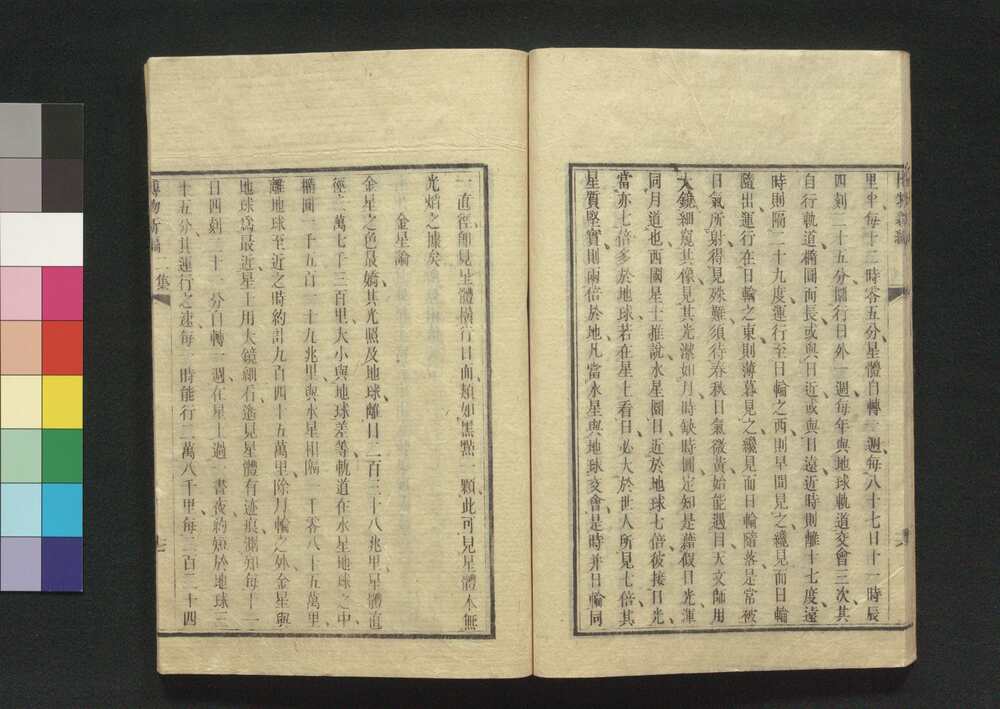 里半每十二時零五分星體自轉一週每八十七日十一時辰
四刻二十五分圜行日外一週每年與地球軌道交會三次其
自行軌道橢圓而長或與日近或與日遠近時則離十七度遠
時則隔二十九度運行至日輪之西則早間見之纔見而日輪
隨出運行在日輪之東則薄暮見之纔見而日輪隨落是常被
日氣所射得見殊難須待春秋日氣微黃始能遇目天文師用
大鏡細窺其像見其光潔如月時缺時圓定知是藉假日光渾
同月道也西國星士推說水星圜日近於地球七倍彼接日光
當亦七倍多於地球若在星上看日必大於世人所見七倍其
星質堅實則兩倍於地凡當水星與地球交會是時并日輪同
一直徑卽見星體橫行日面類如黑㸃一顆此可見星體本無
光焰之據矣
金星論
金星之色最嬌其光照及地球離日二百三十八兆里星體直
徑二萬七千三百里大小與地球差等軌道在水星地球之中
橢圓一千五百一十九兆里與水星相隔一千零八十五萬里
離地球至近之時約計九百四十五萬里除月輪之外金星與
地球爲最近星士用大鏡細看遙見星體有迹痕測知每十一
日四刻二十一分自轉一週在星上過一晝夜約短於地球三
十五分其運行之速每一時能行二萬八千里每二百二十四
博物新編二集